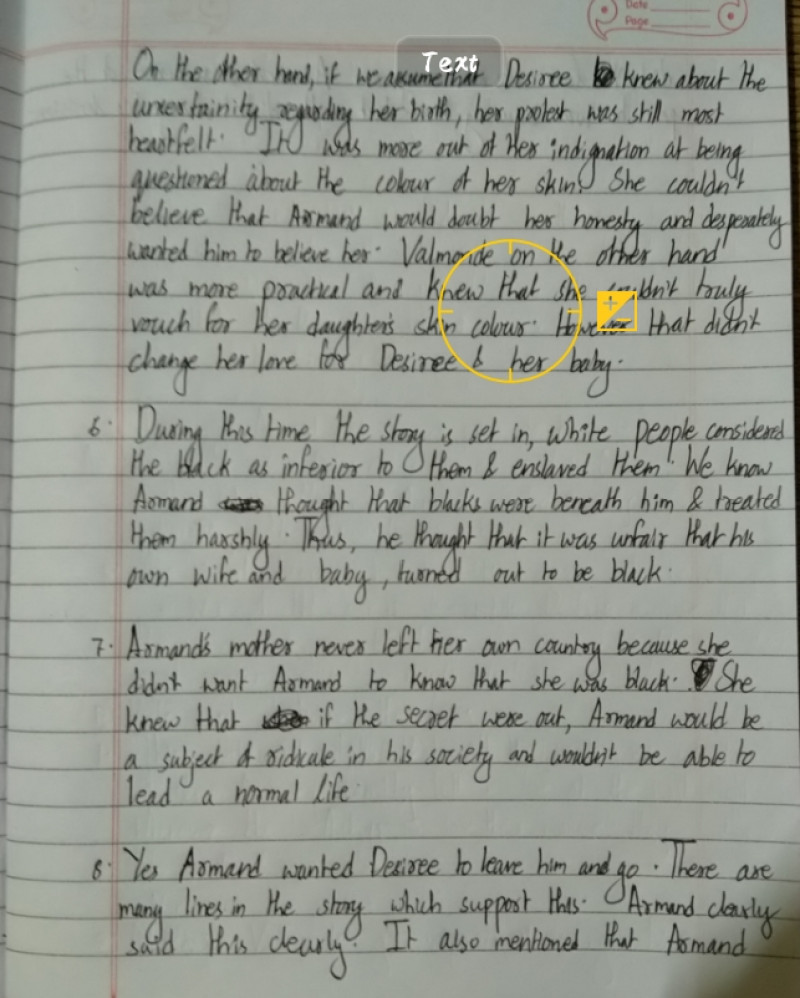 Date
Page
Text
On the other hand, if we assume that Desiree knew about the
uncertainity regarding her birth, her protest was still most
heartfelt. It was more out of Her indignation at being
questioned about the colour of her skin. She couldn't
believe that Armand would doubt her honesty and desperately
wanted him to believe her. Valmonde on the other hand
was more practical and knew that she couldn't truly
vouch for her daughter's skin colour. However that didn't
change her love for Desiree & her baby.
6. During this time the story is set in, white people considered
the black as inferior to them & enslaved them. We know
Armand thought that blacks were beneath him & treated
them harshly. Thus, he thought that it was unfair that his
own wife and baby, turned out to be black.
7. Armand's mother never left her own country because she
didn't want Armand to know that she was black. She
knew that if the secret were out, Armand would be
a subject of ridicule in his society and wouldn't be able to
lead a normal life.
8. Yes Armand wanted Desiree to leave him and go. There are
many lines in the story which support this. Armand clearly
said this clearly. It also mentioned that Armand